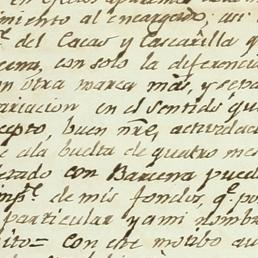 miento al encargado, us.
del Cacao y Cascarilla q
cena, con solo la diferencia
n otra marca mas, y sepa
ariacion en el sentido que
cepto, buen ñre, actividad
e ala buelta de quatro me
erado con Barcena pued
imp.ˢ de mis fondos, q.ᵉ po
particular y ami nombr
ito = Con este motibo au